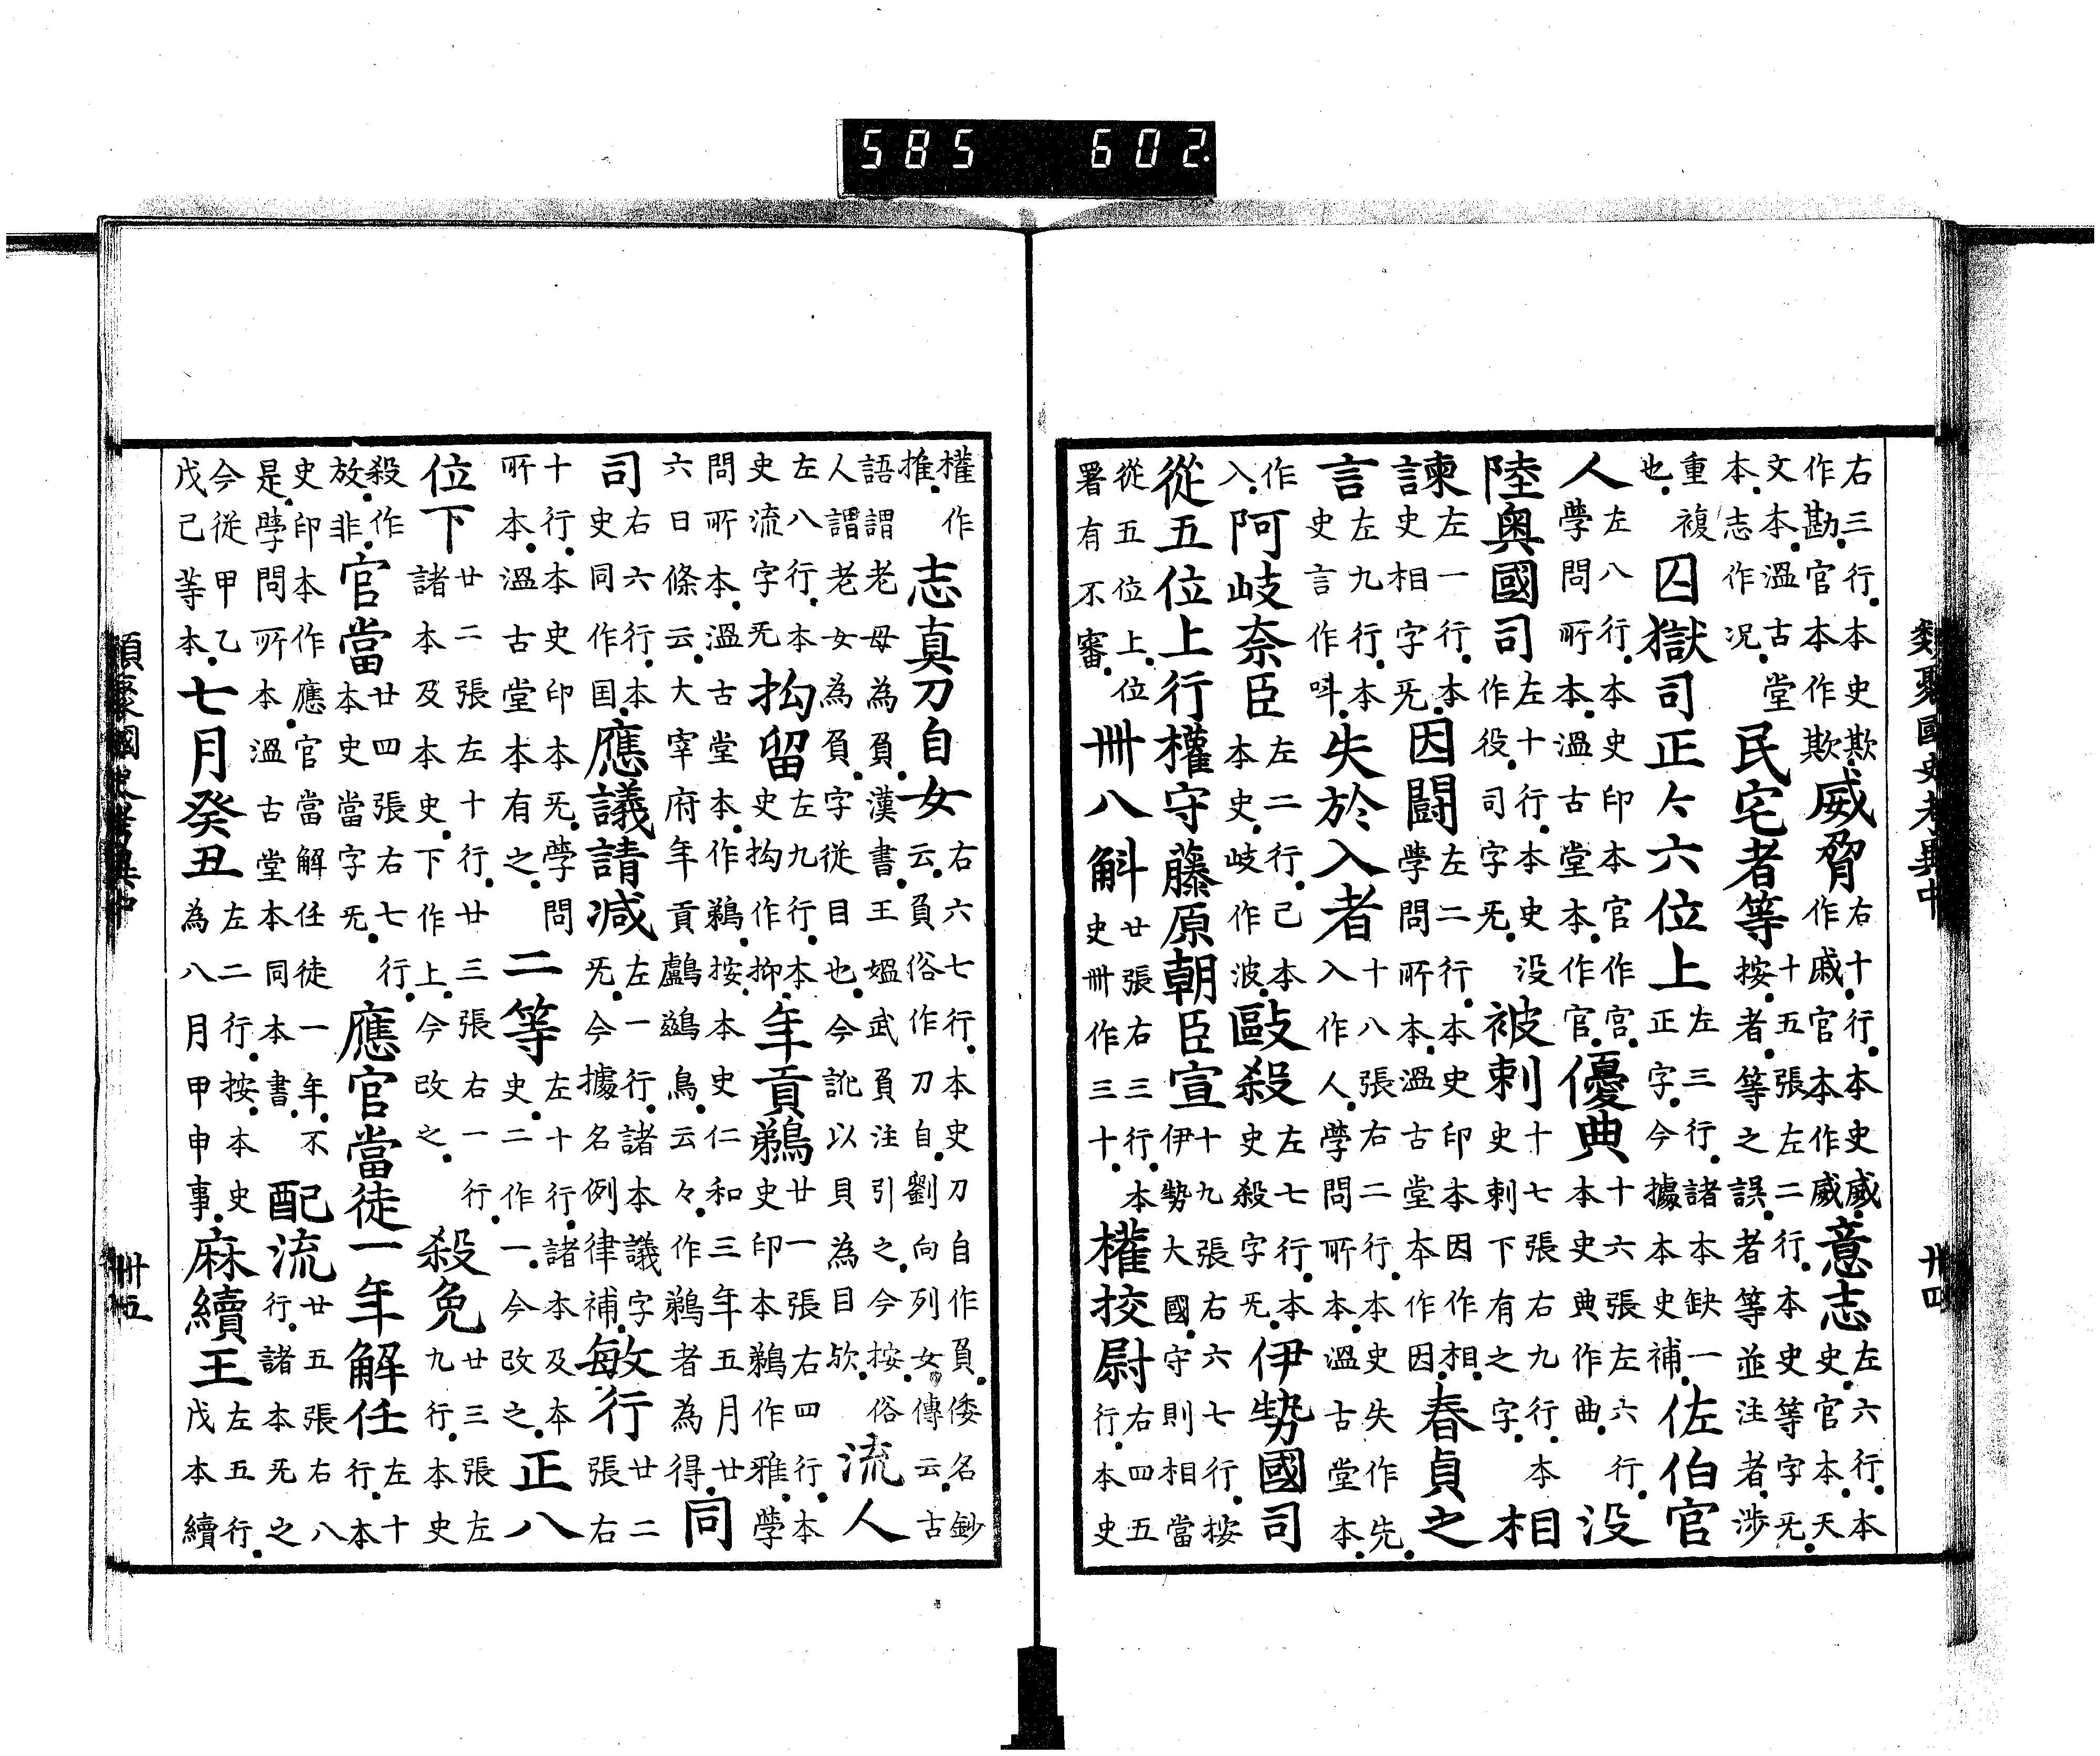 類聚國史考異中 卅四
右三行。本史欺作勘。官本作欺。威脅右十行。本史威作戚。官本作威。意志左六行。本史。官本。天
文本。溫古堂本。志作况。民宅者等十五張左二行。本史等字旡。按。者等之誤。者等並注者。渉
重複也。囚獄司正今六位上左三行。諸本缺一正字。今據本史補。佐伯官
人左八行。本史印本官作宮。學問所本。溫古堂本。作官。優典十六張左六行。本史典作曲。没
陸奥國司左十行。本史。没作役。司字旡。被刺十七張右九行。本史刺下有之字。相
諫左一行。本史相字旡。因闘左二行。本史印本因作相。學問所本。溫古堂本作因。春貞之
言左九行。本史言作呌。失於入者十八張右二行。本史失作先。入作人。學問所本。溫古堂本。
作入。阿岐奈臣左二行。己本本史。岐作波。毆殺左七行。本史殺字旡。伊勢國司
從五位上行權守藤原朝臣宣十九張右六七行。按伊勢大國。守則相當
從五位上。位署有不審。卌八斛廿張右三行。本史卌作三十。權挍尉右四五行。本史
權作推。志真刀自女右六七行。本史刀自作負。倭名鈔云。負俗作刀自。劉向列女傳云。古
語謂老母為負。漢書。王媼武負注引之。今按。俗人謂老女為負。字從目也。今訛以貝為目歟。流人
左八行。本史流字旡拘留左九行。本史拘作抑。年貢鵜廿一張右四行。本史印本鵜作雅。學
問所本。溫古堂本。作鵜。按。本史仁和三年五月廿六日條云。大宰府年貢鸕鷀鳥。云々。作鵜者為得。同
司右六行。本史同作囯。應議請减左一行。諸本議字旡。今據名例律補。敏行廿二張右
十行。本史印本旡。學問所本。溫古堂本有之。二等左十行。諸本及本史。二作一。今改之。正八
位下廿二張左十行。廿三張右一行。諸本及本史。下作上。今改之。殺免廿三張左九行。本史
殺作放。非。官當廿四張右七行。本史當字旡。應官當徒一年解任左十行。本
史印本作應官當解任徒一年。不是。學問所本。溫古堂本同本書。配流廿五張右八行。諸本旡之
今從甲乙戊己等本。七月癸丑左二行。按。本史為八月甲申事。麻續王左五行。戊本續
類聚國史考異中 卅五
585 602